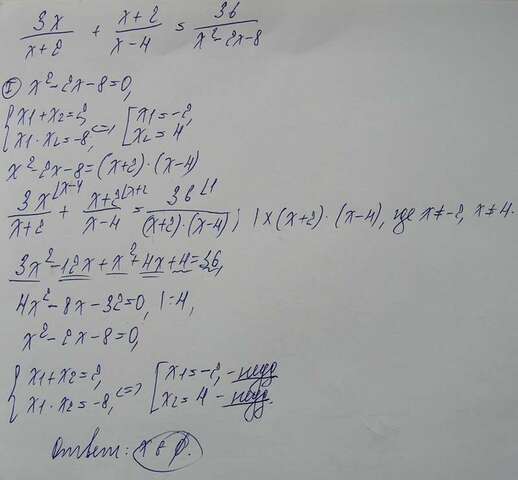 3x/(x+2) + (x+2)/(x-4) = 36/(x²-2x-8)
I x²-2x-8=0,
{ x1+x2=2, x1·x2=-8, <=> [ x1=-2, x2=4
x²-2x-8=(x+2)·(x-4)
3x⌊x-4/(x+2) + x+2⌊x+2/(x-4) = 36⌊1/((x+2)·(x-4)) ; | x(x+2)·(x-4), где x≠-2, x≠4.
3x²-12x+x²+4x+4=36,
4x²-8x-32=0, |:4,
x²-2x-8=0,
{ x1+x2=2, x1·x2=-8, <=> [ x1=-2, - недо x2=4 - недо.
Ответ: x∈∅.